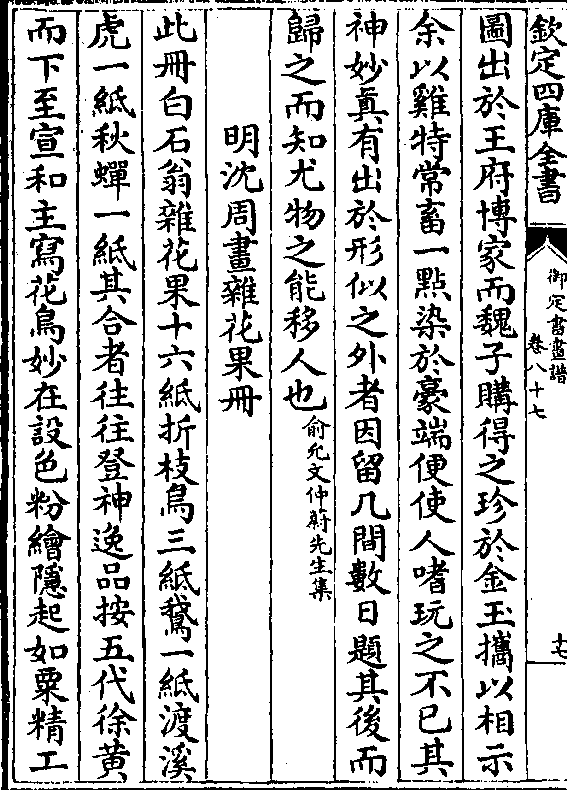 欽定四庫全書
御定書畫譜
卷八十七
十七
圖出於王府博家而魏子購得之珍於金玉攜以相示
余以雞特常畜一點染於豪端便使人嗜玩之不已其
神妙真有出於形似之外者因留几間數日題其後而
歸之而知尤物之能移人也俞允文仲蔚先生集
明沈周畫雜花果冊
此冊白石翁雜花果十六紙折枝鳥三紙鵞一紙渡溪
虎一紙秋蟬一紙其合者往往登神逸品按五代徐黃
而下至宣和主寫花鳥妙在設色粉繪隱起如粟精工